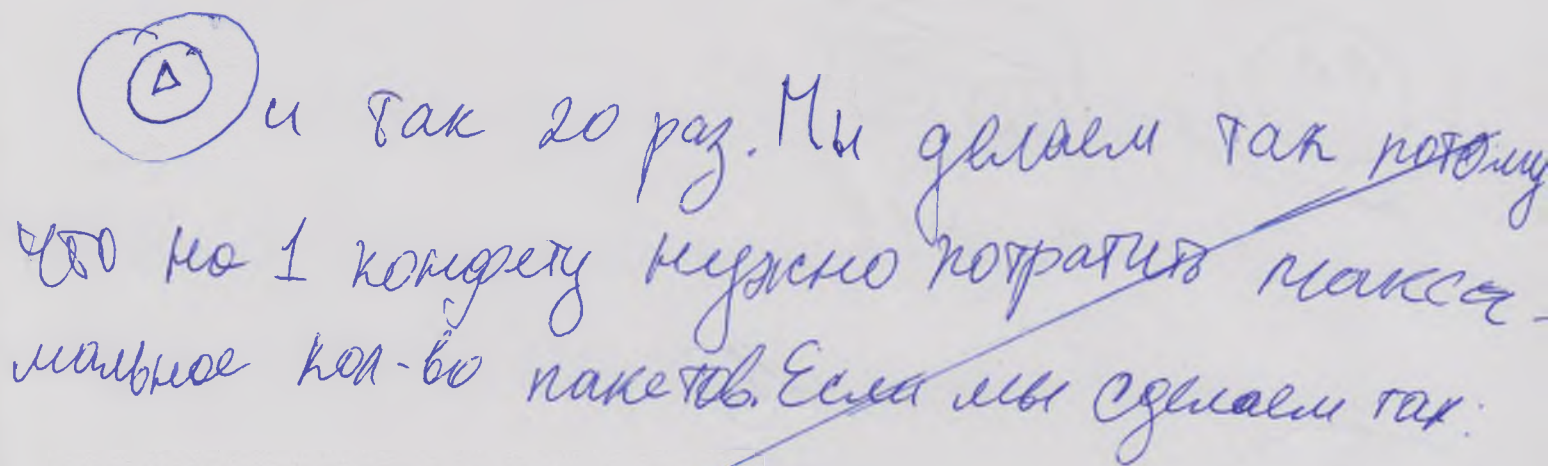 и так 20 раз. Мы делаем так потому
что на 1 конфету нужно потратить макси-
мальное кол-во пакетов. Если мы сделаем так: